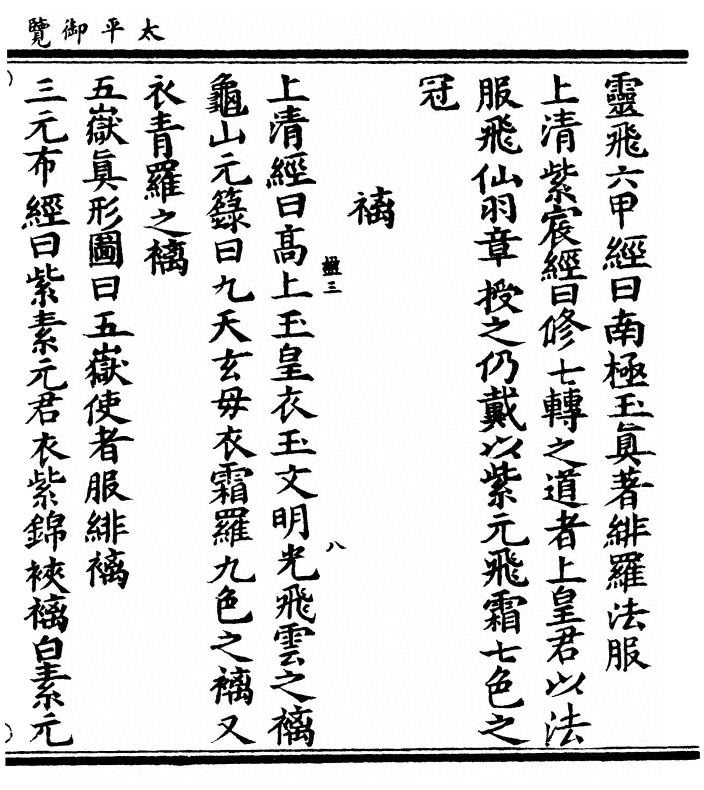 太平御覽
靈飛六甲經曰南極玉眞著緋羅法服
上清紫宸經曰修七轉之道者上皇君以法
服飛仙羽章授之仍戴以紫元飛霜七色之
冠
褵
三 八
上清經曰高上玉皇衣玉文明光飛雲之褵
龜山元籙曰九天玄毋衣霜羅九色之褵又
衣青羅之褵
五嶽眞形圖曰五嶽使者服緋褵
三元布經曰紫素元君衣紫錦裌褵白素元